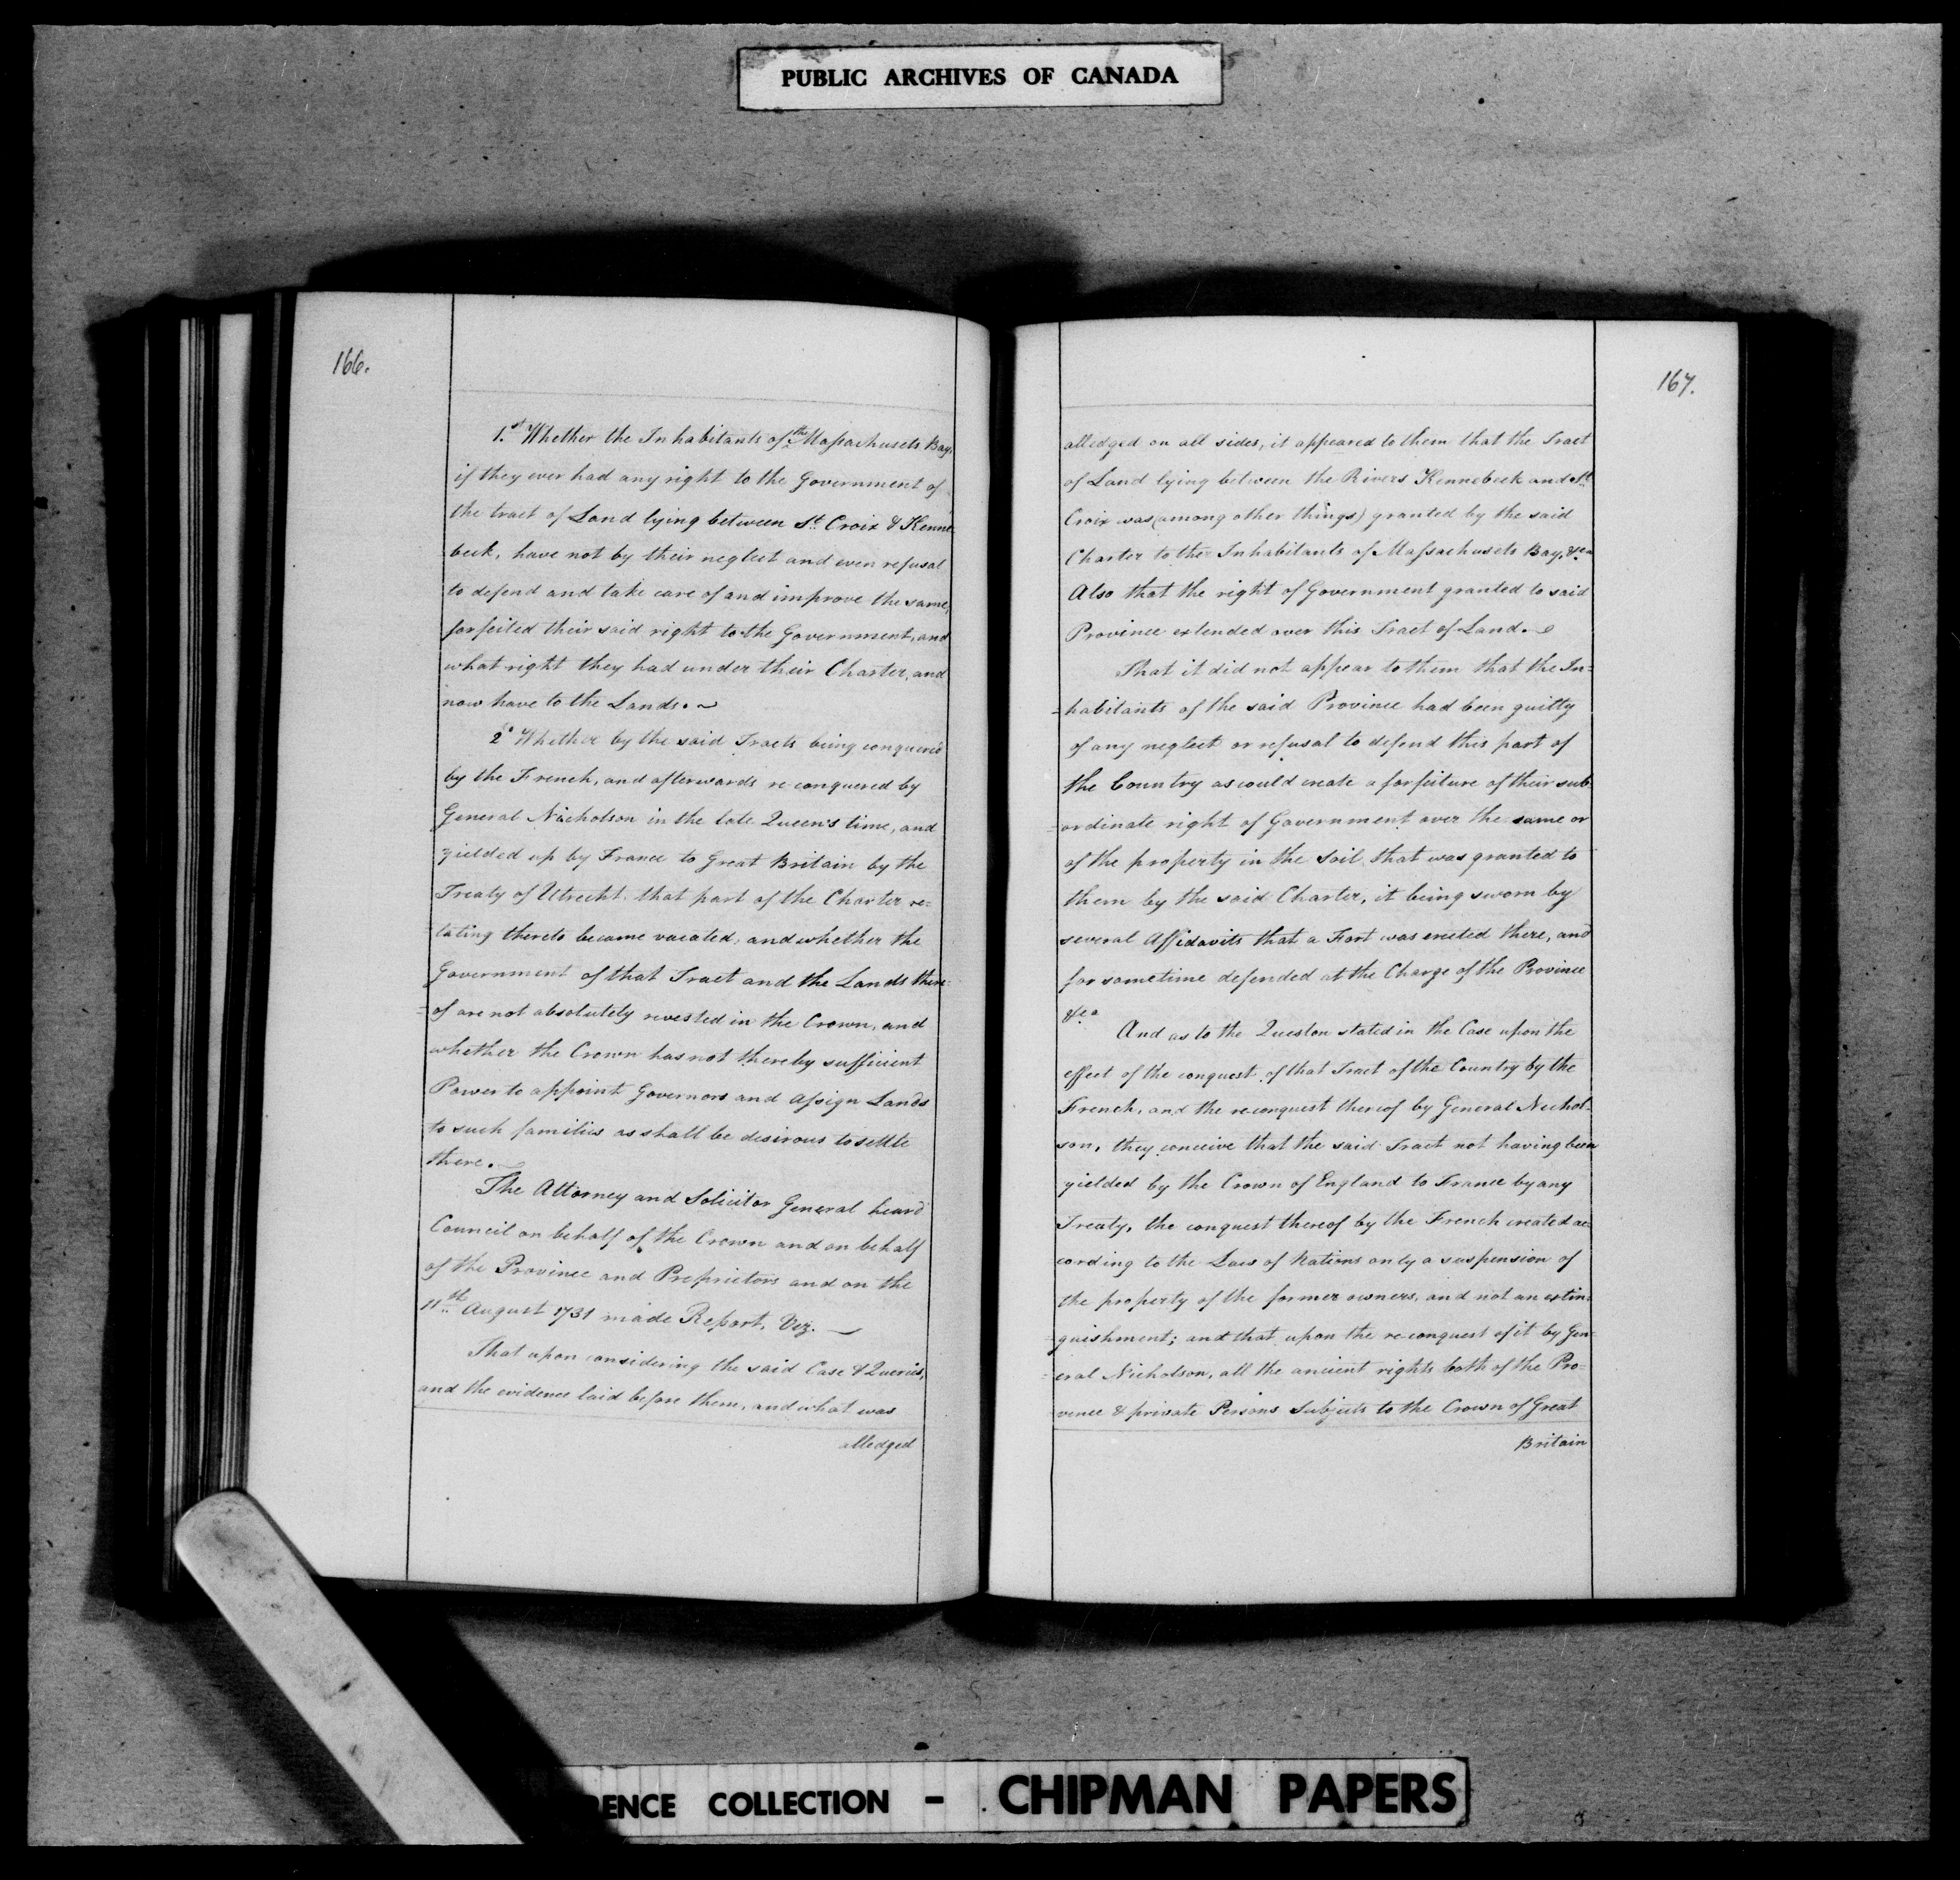 PUBLIC ARCHIVES OF CANADA
166.
1.st Whether the Inhabitants of the Massachusets Bay,
if they ever had any right to the Government of
the tract of Land lying between St. Croix & Kenne
beck, have not by their neglect and even refusal
to defend and take care of and improve the same,
forfeited their said right to the Government, and
what right they had under their Charter, and
now have to the Lands. ~
2d Whether by the said Tracts being conquered
by the French, and afterwards re-conquered by
General Nicholson in the late Queen's time, and
yielded up by France to Great Britain by the
Treaty of Utrecht. that part of the Charter re=
=lating thereto became vacated, and whether the
Government of that Tract and the Lands there=
=of are not absolutely revested in the Crown, and
whether the Crown has not thereby sufficient
Power to appoint Governors and assign Lands
to such families as shall be desirous to settle
there. ~
The Attorney and Solicitor General heard
Council on behalf of the Crown and on behalf
of the Province and Proprietors and on the
11th August 1731 made Report, Viz. ~
That upon considering the said Case & Queries,
and the evidence laid before them, and what was
alledged
167.
alledged on all sides, it appeared to them that the Tract
of Land lying between the Rivers Kennebeck and St.
Croix was (among other things) granted by the said
Charter to the Inhabitants of Massachusets Bay, &ca
Also that the right of Government granted to said
Province extended over this Tract of Land. ~
That it did not appear to them that the In=
=habitants of the said Province had been guilty
of any neglect or refusal to defend this part of
the Country as could create a forfeiture of their sub
=ordinate right of Government over the same or
of the property in the soil, that was granted to
them by the said Charter, it being sworn by
several Affidavits that a Fort was erected there, and
for sometime defended at the Charge of the Province
&ca
And as to the Question stated in the Case upon the
effect of the conquest of that Tract of the Country by the
French, and the reconquest thereof by General Nichol-
son, they conceive that the said Tract not having been
yielded by the Crown of England to France by any
Treaty, the conquest thereof by the French created ac
cording to the Law of Nations only a suspension of
the property of the former owners, and not an extin=
=guishment; and that upon the re-conquest of it by Gen=
=eral Nicholson, all the ancient rights both of the Pro=
vince & private Persons Subjects to the Crown of Great
Britain
RENCE COLLECTION - CHIPMAN PAPERS